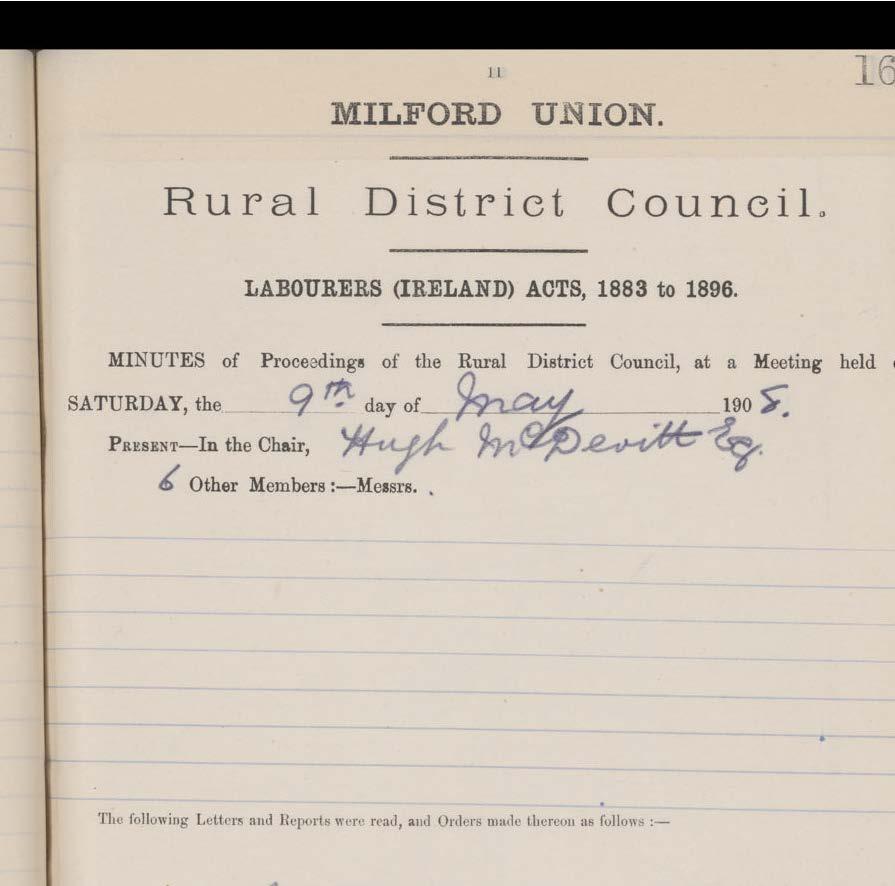 11
16
MILFORD UNION.
Rural District Council.
LABOURERS (IRELAND) ACTS, 1883 to 1896.
MINUTES of Proceedings of the Rural District Council, at a Meeting held
SATURDAY, the 9th day of May 1908.
PRESENT—In the Chair, Hugh McDevitt Esq.
6 Other Members:—Messrs.
The following Letters and Reports were read, and Orders made thereon as follows:—